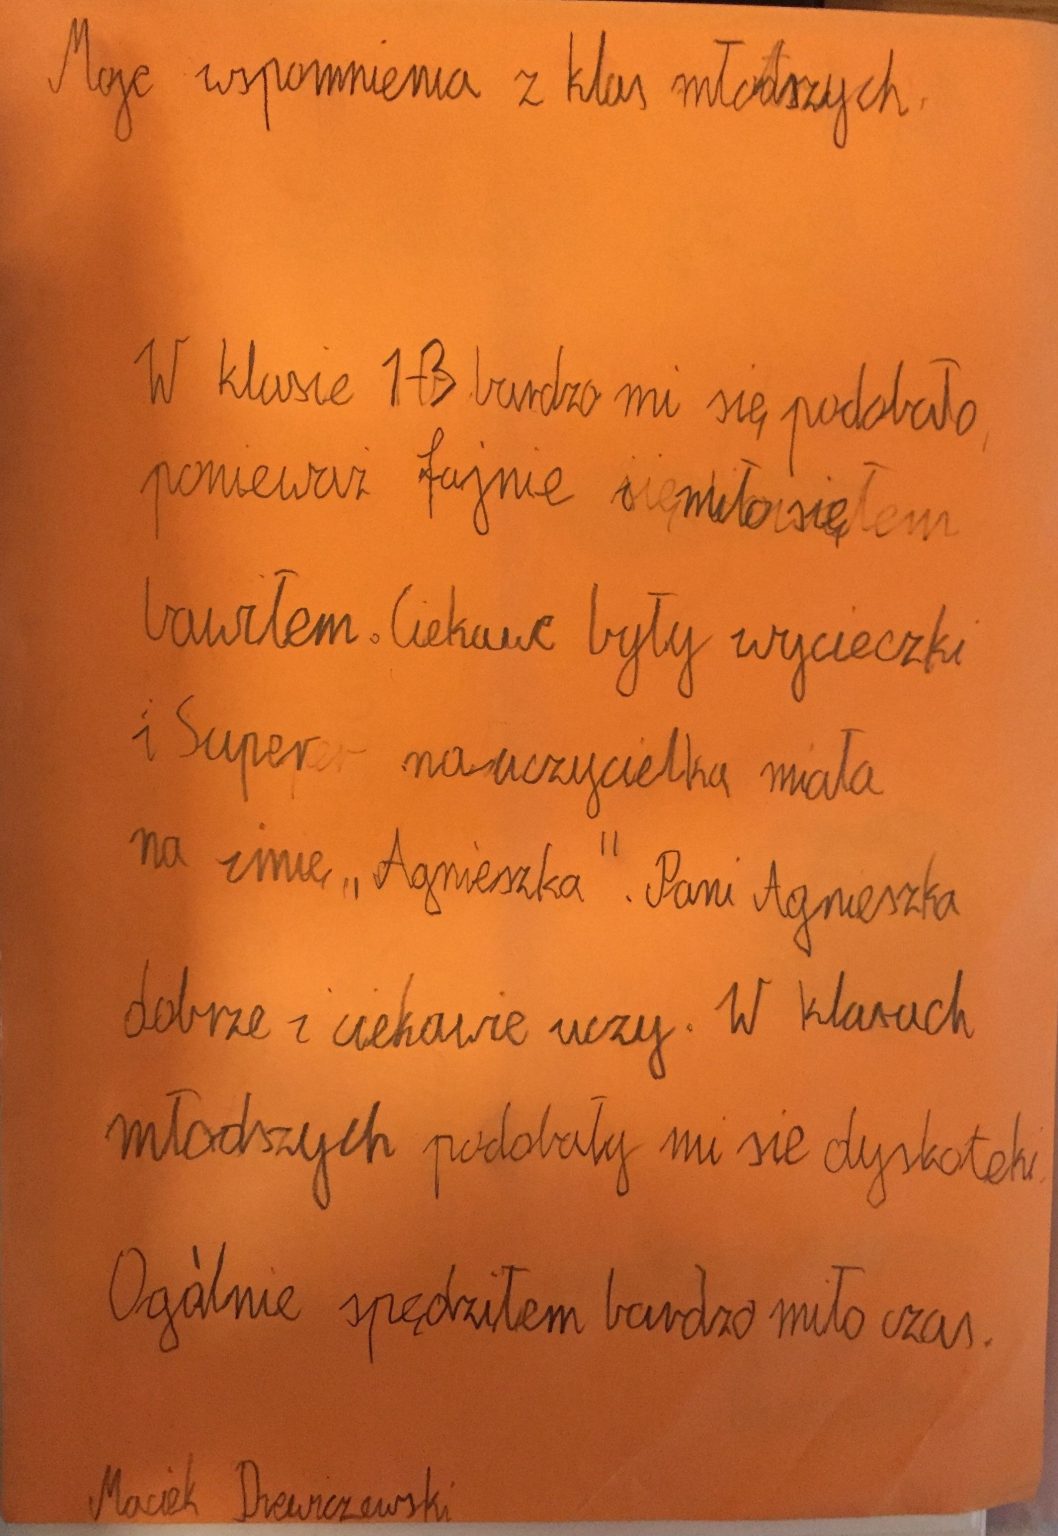 Moje wspomnienia z klas młodszych.
W klasie 1-3 bardzo mi się podobało,
ponieważ fajnie i miło się
bawiłem. Ciekawe były wycieczki
i Super nauczycielka miała
na imię „Agnieszka". Pani Agnieszka
dobrze i ciekawie uczy. W klasach
młodszych podobały mi sie dyskoteki.
Ogólnie spędziłem bardzo miło czas.
Maciek